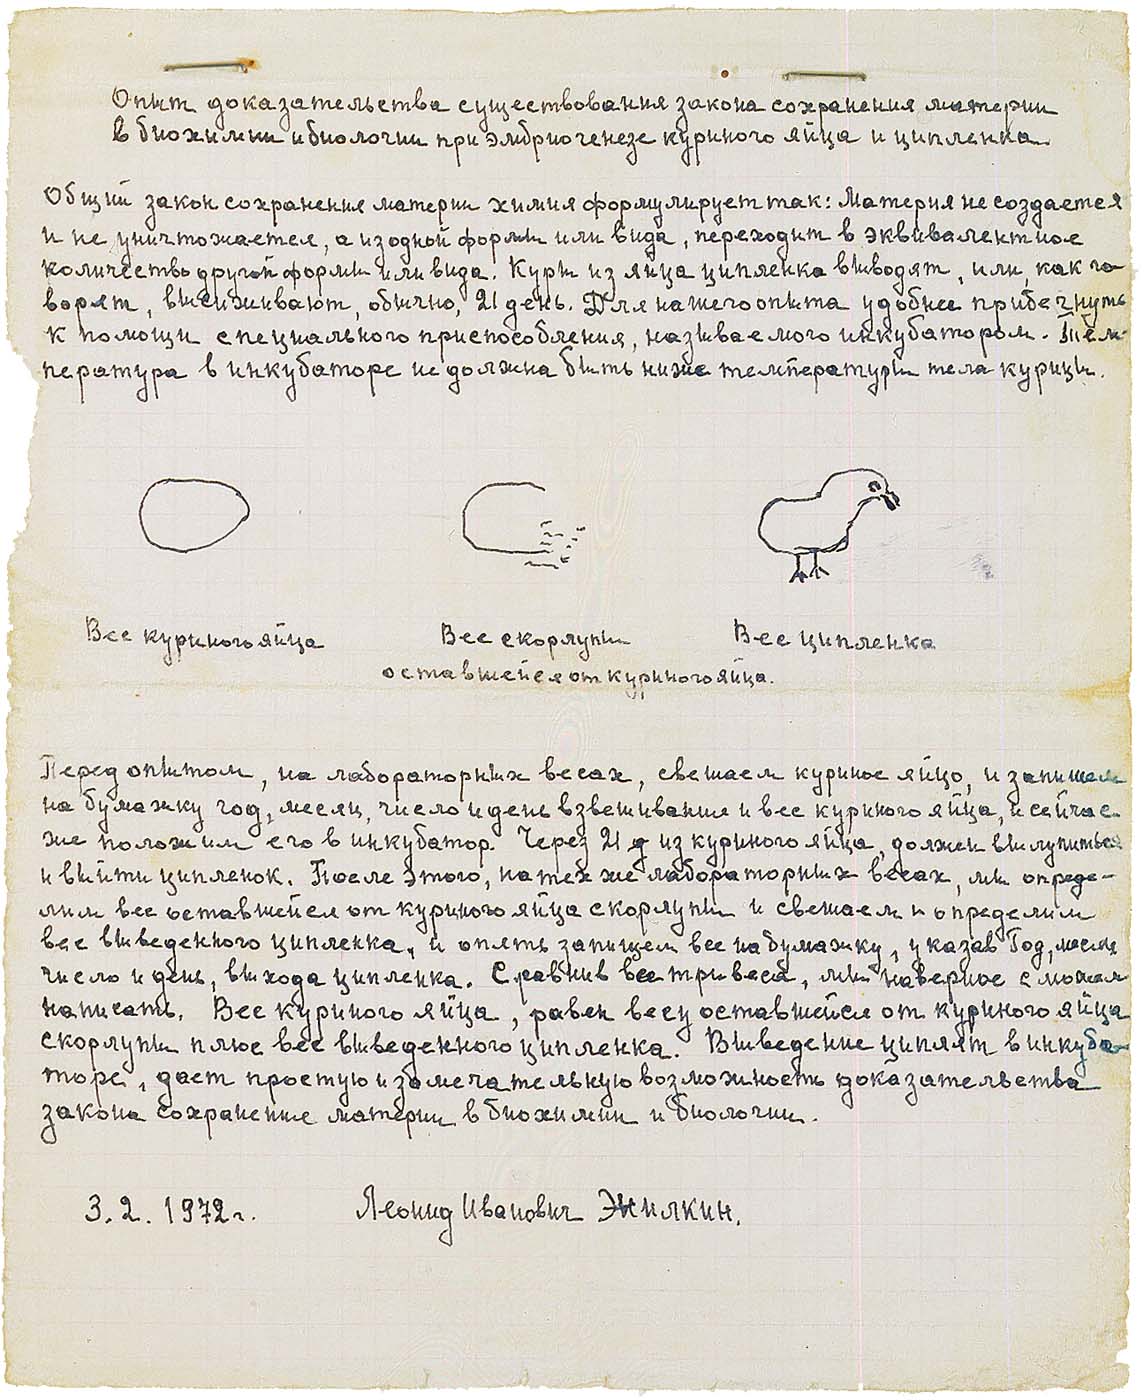 Опыт доказательства существования закона сохранения материи
в биохимии и биологии при эмбриогенезе куриного яйца иципленка.
Общий закон сохранения материи химия формулирует так: Материя не создается
и не уничтожается, а из одной формы или вида, переходит в эквивалентное
количество другой формы или вида. Куры из яйца ципленка выводят, или, как го-
ворят, высиживают, обычно, 21 день. Для нашего опыта удобнее прибегнуть
к помощи специального приспособления, называемого инкубатором. Тем-
пература в инкубаторе не должна быть ниже температуры тела курицы.
Вес куриного яйца
Вес скорлупы
оставшейся от куриного яйца.
Вес ципленка
Перед опытом, на лабораторных весах, свешаем куриное яйцо, и запишем
на бумажку год, месяц, число и день взвешивания и вес куриного яйца, и сейчас-
же положим его в инкубатор. Через 21 д из куриного яйца, должен вылупиться
и выйти ципленок. После этого, на тех же лабораторных весах, мы опреде-
лим вес оставшейся от куриного яйца скорлупы и свешаем и определим
вес выведенного ципленка, и опять запишем вес на бумажку, указав Год, месяц
число и день, выхода ципленка. Сравнив все три веса, мы наверное сможем
написать. Вес куриного яйца, равен весу оставшейся от куриного яйца
скорлупы плюс вес выведенного ципленка. Выведение циплят в инкуба-
торе, дает простую и замечательную возможность доказательства
закона сохранение материи в биохимии и биологии.
3.2.1972г. Леонид Иванович